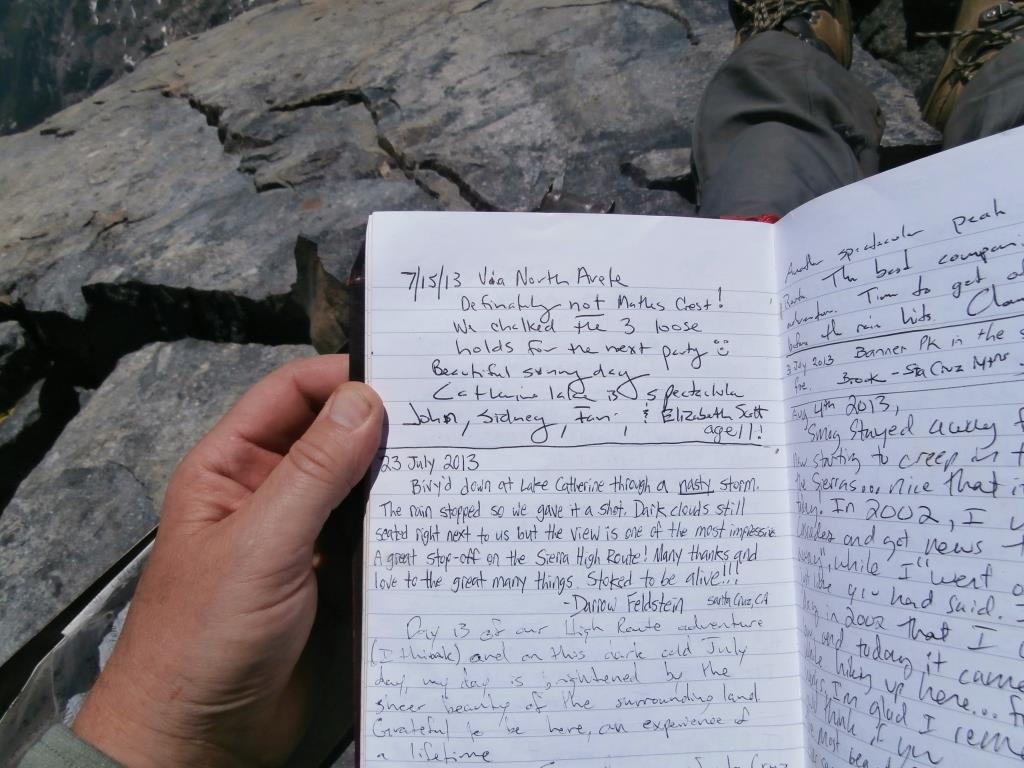 7/15/13 Via North Arete
Definately not Mathes Crest!
We chalked the 3 loose
holds for the next party
Beautiful sunny day
Catherine lake is spectacular
John, Sidney, & Elizabeth Scott
age 11!
23 July 2013
Bivy'd down at Lake Catherine through a nasty storm.
The rain stopped so we gave it a shot. Dark clouds still
seated right next to us but the view is one of the most impressive
A great stop-off on the Sierra High Route! Many thanks and
love to the great many things. Stoked to be alive!!!
-Darrow Feldstein Santa Cruz, CA
Day 13 of our High Route adventure
(I think) and on this dark cold July
day, my day is brightened by the
sheer beauty of the surrounding land
Grateful to be here, an experience of
a lifetime
Another spectacular peak
The best compani
adventure. Time to get o
before the rain hits.
July 2013 Banner Pk in the
Brook - Sta Cruz Mtns
Aug 4th 2013,
Smog stayed away f
starting to creep in t
the Sierras... nice that i
In 2002, I
and got news
while I went o
you had said.
in 2002 that I
and today it came
hiking up here...
I'm glad I rem
think if you
most bea